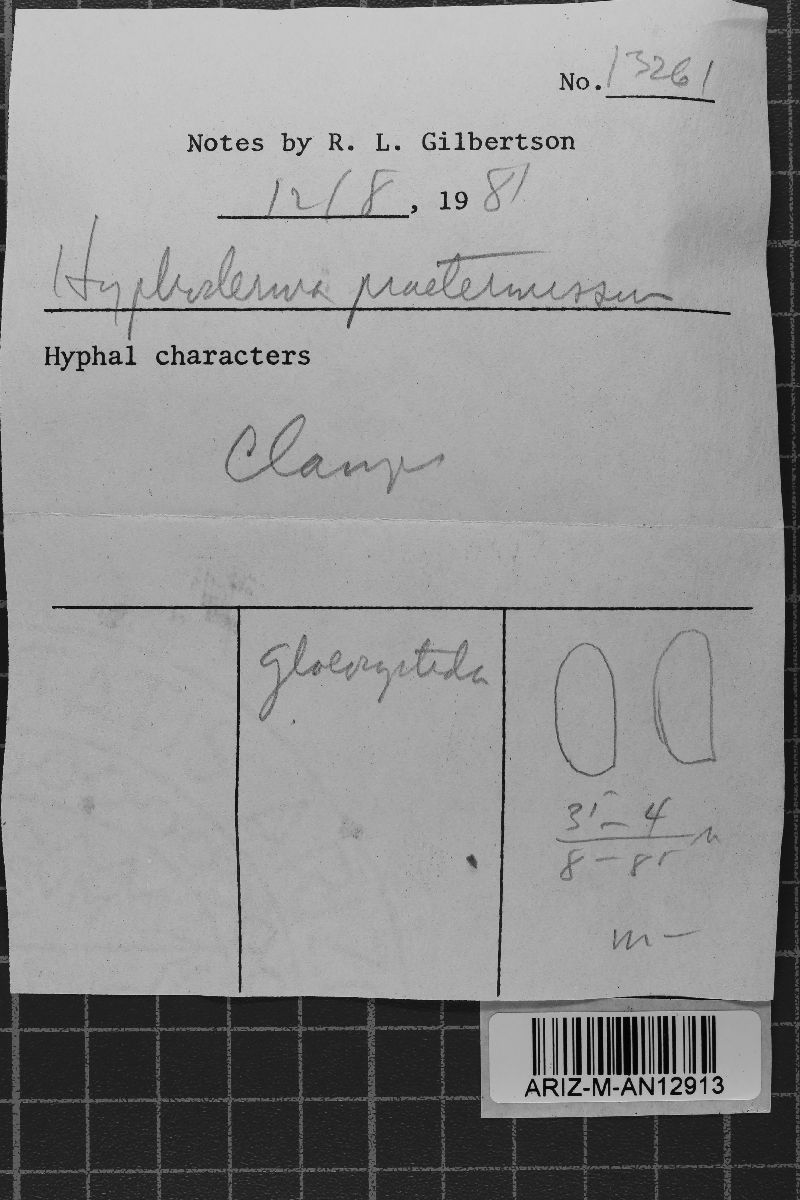 No. 13261
Notes by R. L. Gilbertson
12/8, 1981
Hyphoderma praetermissum
Hyphal characters
Clamps
gloeocystidia
3⁵ – 4
8 – 8⁵ μ
m –
ARIZ-M-AN12913